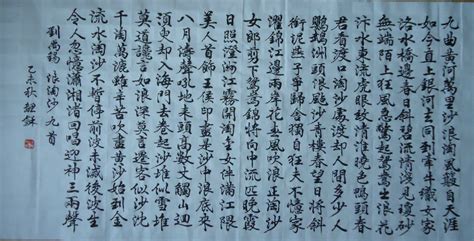 九曲黄河万里沙浪淘風簸自天涯
如今直上銀河去同到牽牛織女家
洛水橋邊春日斜碧流清淺見瓊砂
無端陌上狂風急驚起鴛鴦出浪花
汴水東流虎眼紋清淮曉色鴨頭春
君看渡口淘沙處渡却人間多少人
鸚鵡洲頭浪颭沙青樓春望日將斜
銜泥燕子爭歸舍獨自狂夫不憶家
濯錦江邊兩岸花春風吹浪正淘沙
女郎剪下鴛鴦錦將向中流匹晚霞
日照澄洲江霧開淘金女伴滿江隈
美人首飾王侯印盡是沙中浪底來
八月濤聲吼地來頭高數丈觸山迴
須臾却入海門去卷起沙堆似雪堆
莫道讒言如浪深莫言遷客似沙沈
千淘萬漉雖辛苦吹盡黄沙始到金
流水淘沙不暫停前波未滅後波生
令人忽憶瀟湘渚回唱迎神三兩聲
劉禹錫 浪淘沙九首
乙未秋